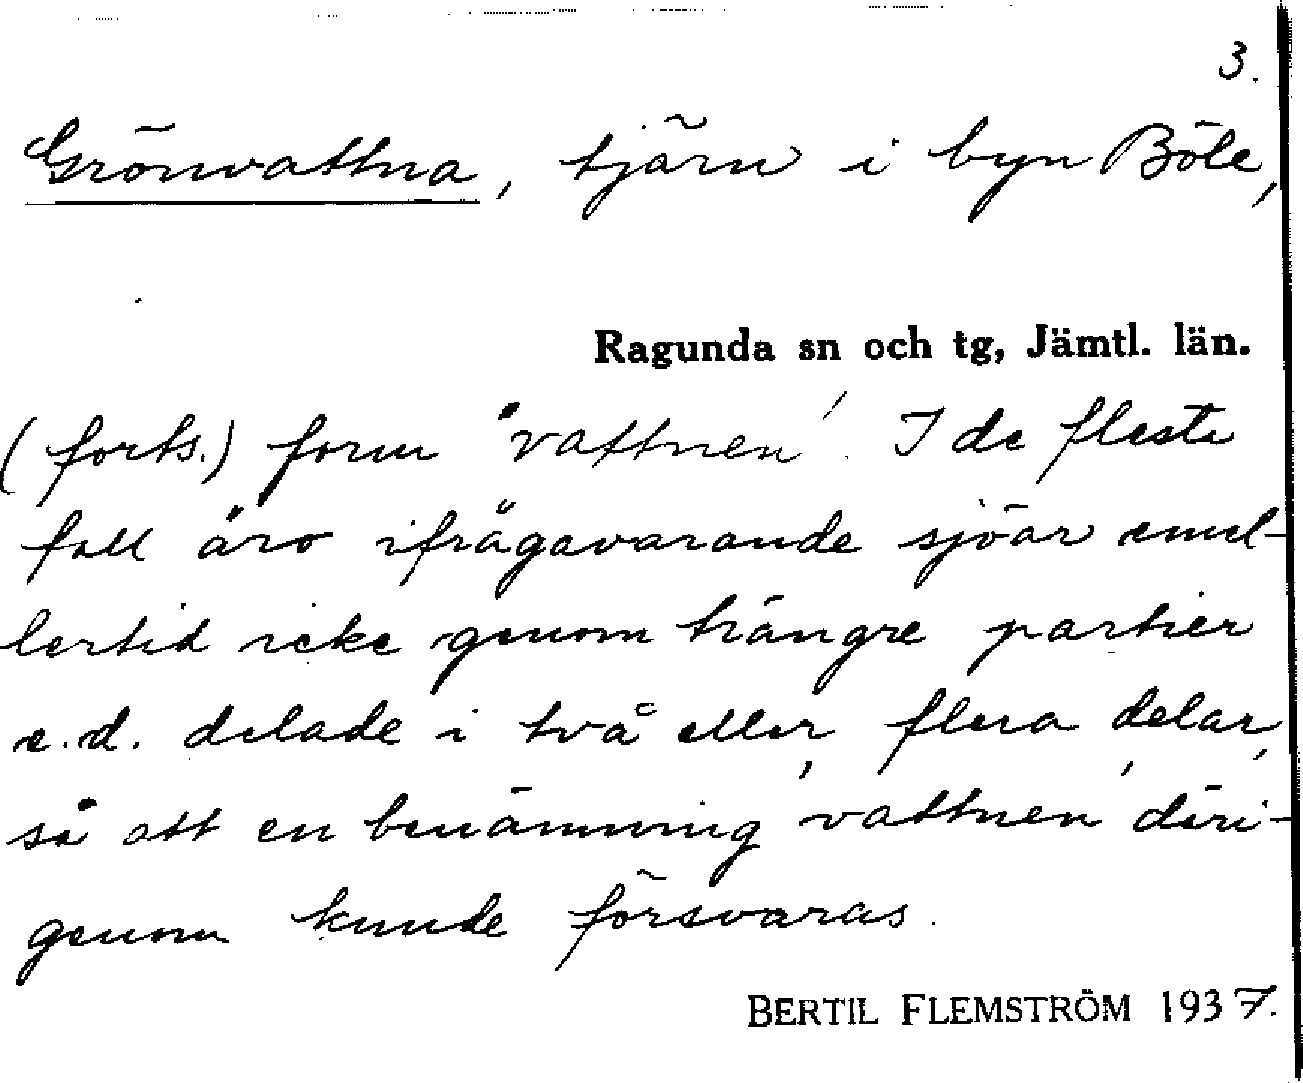 3.
Grönvattna, tjärn i byn Böle,
Ragunda sn och tg, Jämtl. län.
(forts.) form 'vattnen'. I de flesta
fall äro ifrågavarande sjöar emel-
lertid icke genom trängre partier
e.d. delade i två eller flera delar,
så att en benämning 'vattnen' däri-
genom kunde försvaras.
BERTIL FLEMSTRÖM 1937.